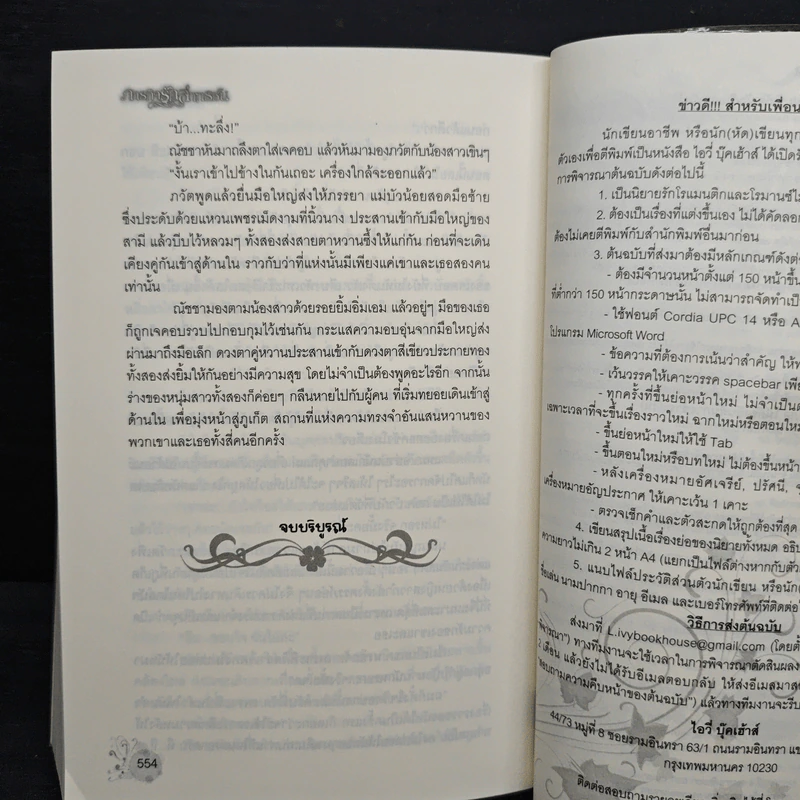 "บ้า...ทะลึ่ง!"
ณัชชาหันมาถลึงตาใส่เจคอบ แล้วหันมามองภวัตกับน้องสาวเขินๆ
"งั้นเราเข้าไปข้างในกันเถอะ เครื่องใกล้จะออกแล้ว"
ภวัตพูดแล้วยื่นมือใหญ่ส่งให้ภรรยา แม่บัวน้อยสอดมือซ้าย
ซึ่งประดับด้วยแหวนเพชรเม็ดงามที่นิ้วนาง ประสานเข้ากับมือใหญ่ของ
สามี แล้วบีบไว้หลวมๆ ทั้งสองส่งสายตาหวานซึ้งให้แก่กัน ก่อนที่จะเดิน
เคียงคู่กันเข้าสู่ด้านใน ราวกับว่าที่แห่งนั้นมีเพียงแค่เขาและเธอสองคน
เท่านั้น
ณัชชามองตามน้องสาวด้วยรอยยิ้มอิ่มเอม แล้วอยู่ๆ มือของเธอ
ก็ถูกเจคอบรวบไปกอบกุมไว้เช่นกัน กระแสความอบอุ่นจากมือใหญ่ส่ง
ผ่านมาถึงมือเล็ก ดวงตาคู่หวานประสานเข้ากับดวงตาสีเขียวประกายทอง
ทั้งสองส่งยิ้มให้กันอย่างมีความสุข โดยไม่จำเป็นต้องพูดอะไรอีก จากนั้น
ร่างของหนุ่มสาวทั้งสองก็ค่อยๆ กลืนหายไปกับผู้คน ที่เริ่มทยอยเดินเข้าสู่
ด้านใน เพื่อมุ่งหน้าสู่ภูเก็ต สถานที่แห่งความทรงจำอันแสนหวานของ
พวกเขาและเธอทั้งสี่คนอีกครั้ง
จบบริบูรณ์
554
ข่าวดี!!! สำหรับเพื่อน
นักเขียนอาชีพ หรือนัก(หัด)เขียนทุก
ตัวเองเพื่อตีพิมพ์เป็นหนังสือ ไอวี่ บุ๊คเฮ้าส์ ได้เปิด
การพิจารณาต้นฉบับดังต่อไปนี้
1. เป็นนิยายรักโรแมนติกและโรมานซ์
2. ต้องเป็นเรื่องที่แต่งขึ้นเอง ไม่ได้คัดลอก
ต้องไม่เคยตีพิมพ์กับสำนักพิมพ์อื่นมาก่อน
3. ต้นฉบับที่ส่งมาต้องมีหลักเกณฑ์ดัง
- ต้องมีจำนวนหน้าตั้งแต่ 150 หน้าขึ้น
ที่ต่ำกว่า 150 หน้ากระดาษนั้น ไม่สามารถจัดทำ
- ใช้ฟอนต์ Cordia UPC 14 หรือ A
โปรแกรม Microsoft Word
- ข้อความที่ต้องการเน้นว่าสำคัญ ให้
- เว้นวรรคให้เคาะวรรค spacebar เพีย
- ทุกครั้งที่ขึ้นย่อหน้าใหม่ ไม่จำเป็น
เฉพาะเวลาที่จะขึ้นเรื่องราวใหม่ ฉากใหม่หรือตอนใหม่
- ขึ้นย่อหน้าใหม่ให้ใช้ Tab
- ขึ้นตอนใหม่หรือบทใหม่ ไม่ต้องขึ้นหน้า
- หลังเครื่องหมายอัศเจรีย์, ปรัศนี,
เครื่องหมายอัญประกาศ ให้เคาะเว้น 1 เคาะ
- ตรวจเช็กคำและตัวสะกดให้ถูกต้องที่สุด
4. เขียนสรุปเนื้อเรื่องย่อของนิยายทั้งหมด
ความยาวไม่เกิน 2 หน้า A4 (แยกเป็นไฟล์ต่างหากกับ
5. แนบไฟล์ประวัติส่วนตัวนักเขียน หรือนัก
ชื่อเล่น นามปากกา อายุ อีเมล และเบอร์โทรศัพท์ที่ติดต่อ
วิธีการส่งต้นฉบับ
ส่งมาที่ L.ivybookhouse@gmail.com
พิจารณา") ทางทีมงานจะใช้เวลาในการพิจารณาตัดสินผลงาน
2 เดือน แล้วยังไม่ได้รับอีเมลตอบกลับ ให้ส่งอีเมลมา
สอบถามความคืบหน้าของต้นฉบับ") แล้วทางทีมงานจะรีบ
ไอวี่ บุ๊คเฮ้าส์
44/73 หมู่ที่ 8 ซอยรามอินทรา 63/1 ถนนรามอินทรา
กรุงเทพมหานคร 10230